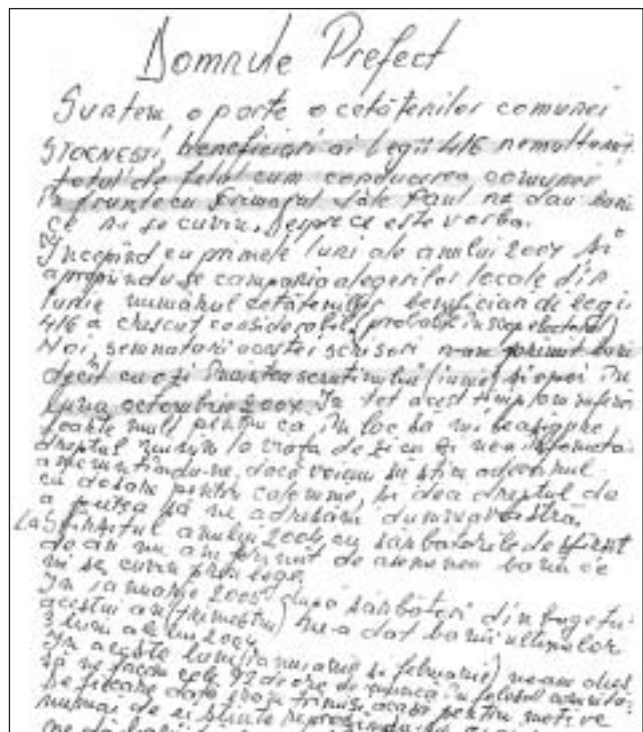 Domnule Prefect
Suntem o parte a cetățenilor comunei
STOENEȘTI, beneficiari ai Legii 416 nemulțumiți
total de felul cum conducerea comunei
în frunte cu Primarul Paul ne dau banii
ce ni se cuvin. Despre ce este vorba.
Începînd cu primele luni ale anului 2004 și
apropiindu-se campania alegerilor locale din
Iunie numărul cetățenilor beneficiari de legii
416 a crescut considerabil (probabil în scop electoral)
Noi, semnatarii acestei scrisori n-am primit bani
decît cu o zi înaintea scrutinului (iunie) și apoi în
luna octombrie 2004. În tot acest timp am suferit
foarte mult pentru că în loc să ni se asigure
dreptul la viața de zi cu zi
amenințîndu-ne, dacă voiam să știm adevărul
cu dosare pentru calomnie, și dea dreptul de
a putea să ne adresăm dumneavoastră.
La Sfîrșitul anului 2004 cu sărbătorile de sfîrșit
de an nu am primit de asemenea banii ce
ni se cuvin prin lege.
În ianuarie 2005, după sărbători din bugetul
acestui an (trimestru) ne-a dat banii ultimelor
3 luni ale lui 2004
În aceste luni (ianuarie și februarie) ne-am dus
să ne facem cele 72 de ore de muncă în folosul comunității
De fiecare dată trimiși acasă pentru motive
numai de ei știute